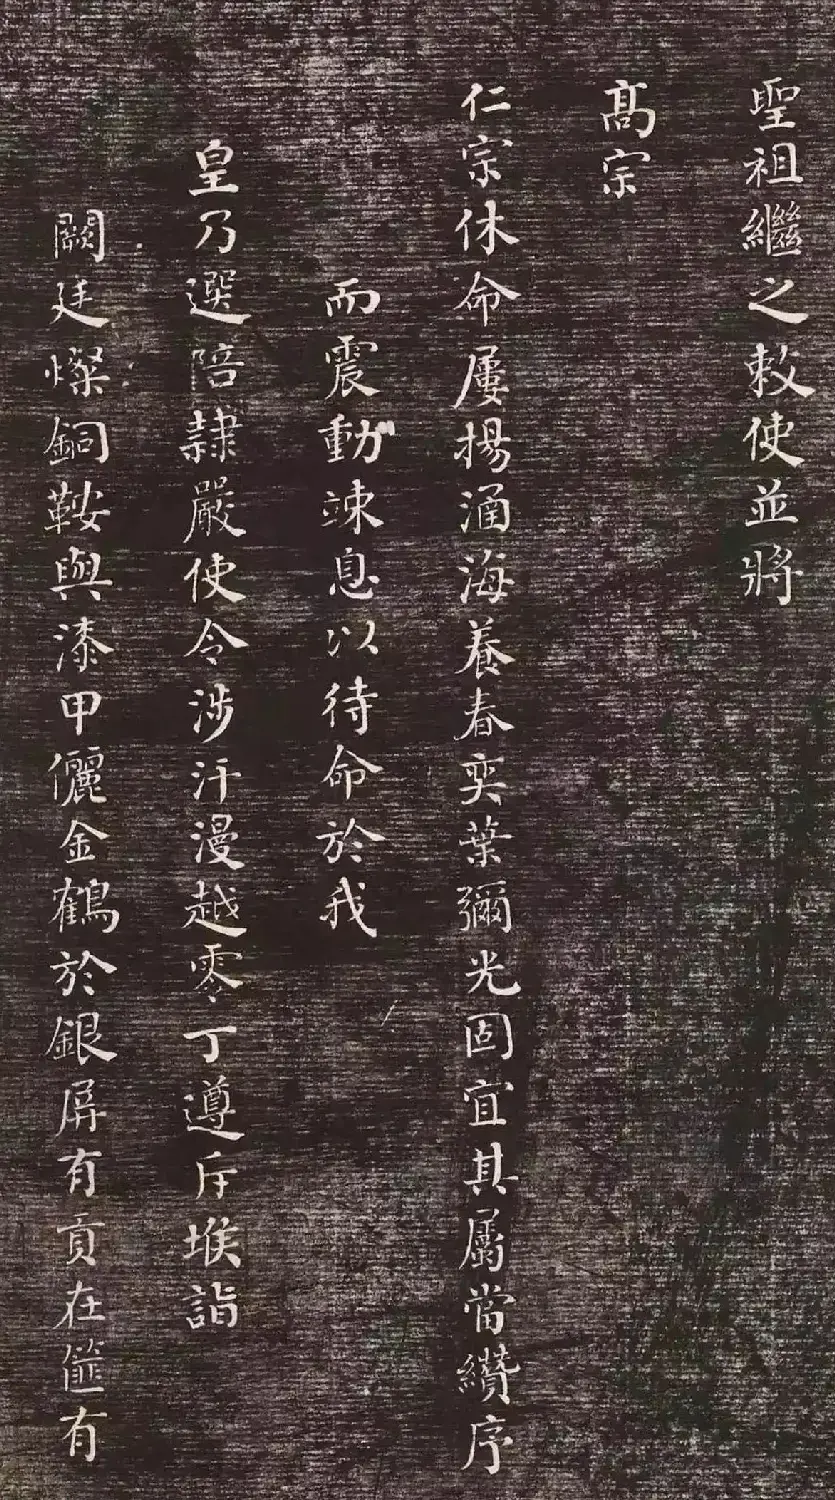 聖祖繼之敕使並將
高宗
仁宗休命屢揚涵海養春奕葉彌光固宜其屬當纘序
而震動竦息以待命於我
皇乃選陪隷嚴使令涉汗漫越零丁遵斥堠詣
闕廷燦銅鞍與漆甲儷金鶴於銀屏有貢在篚有